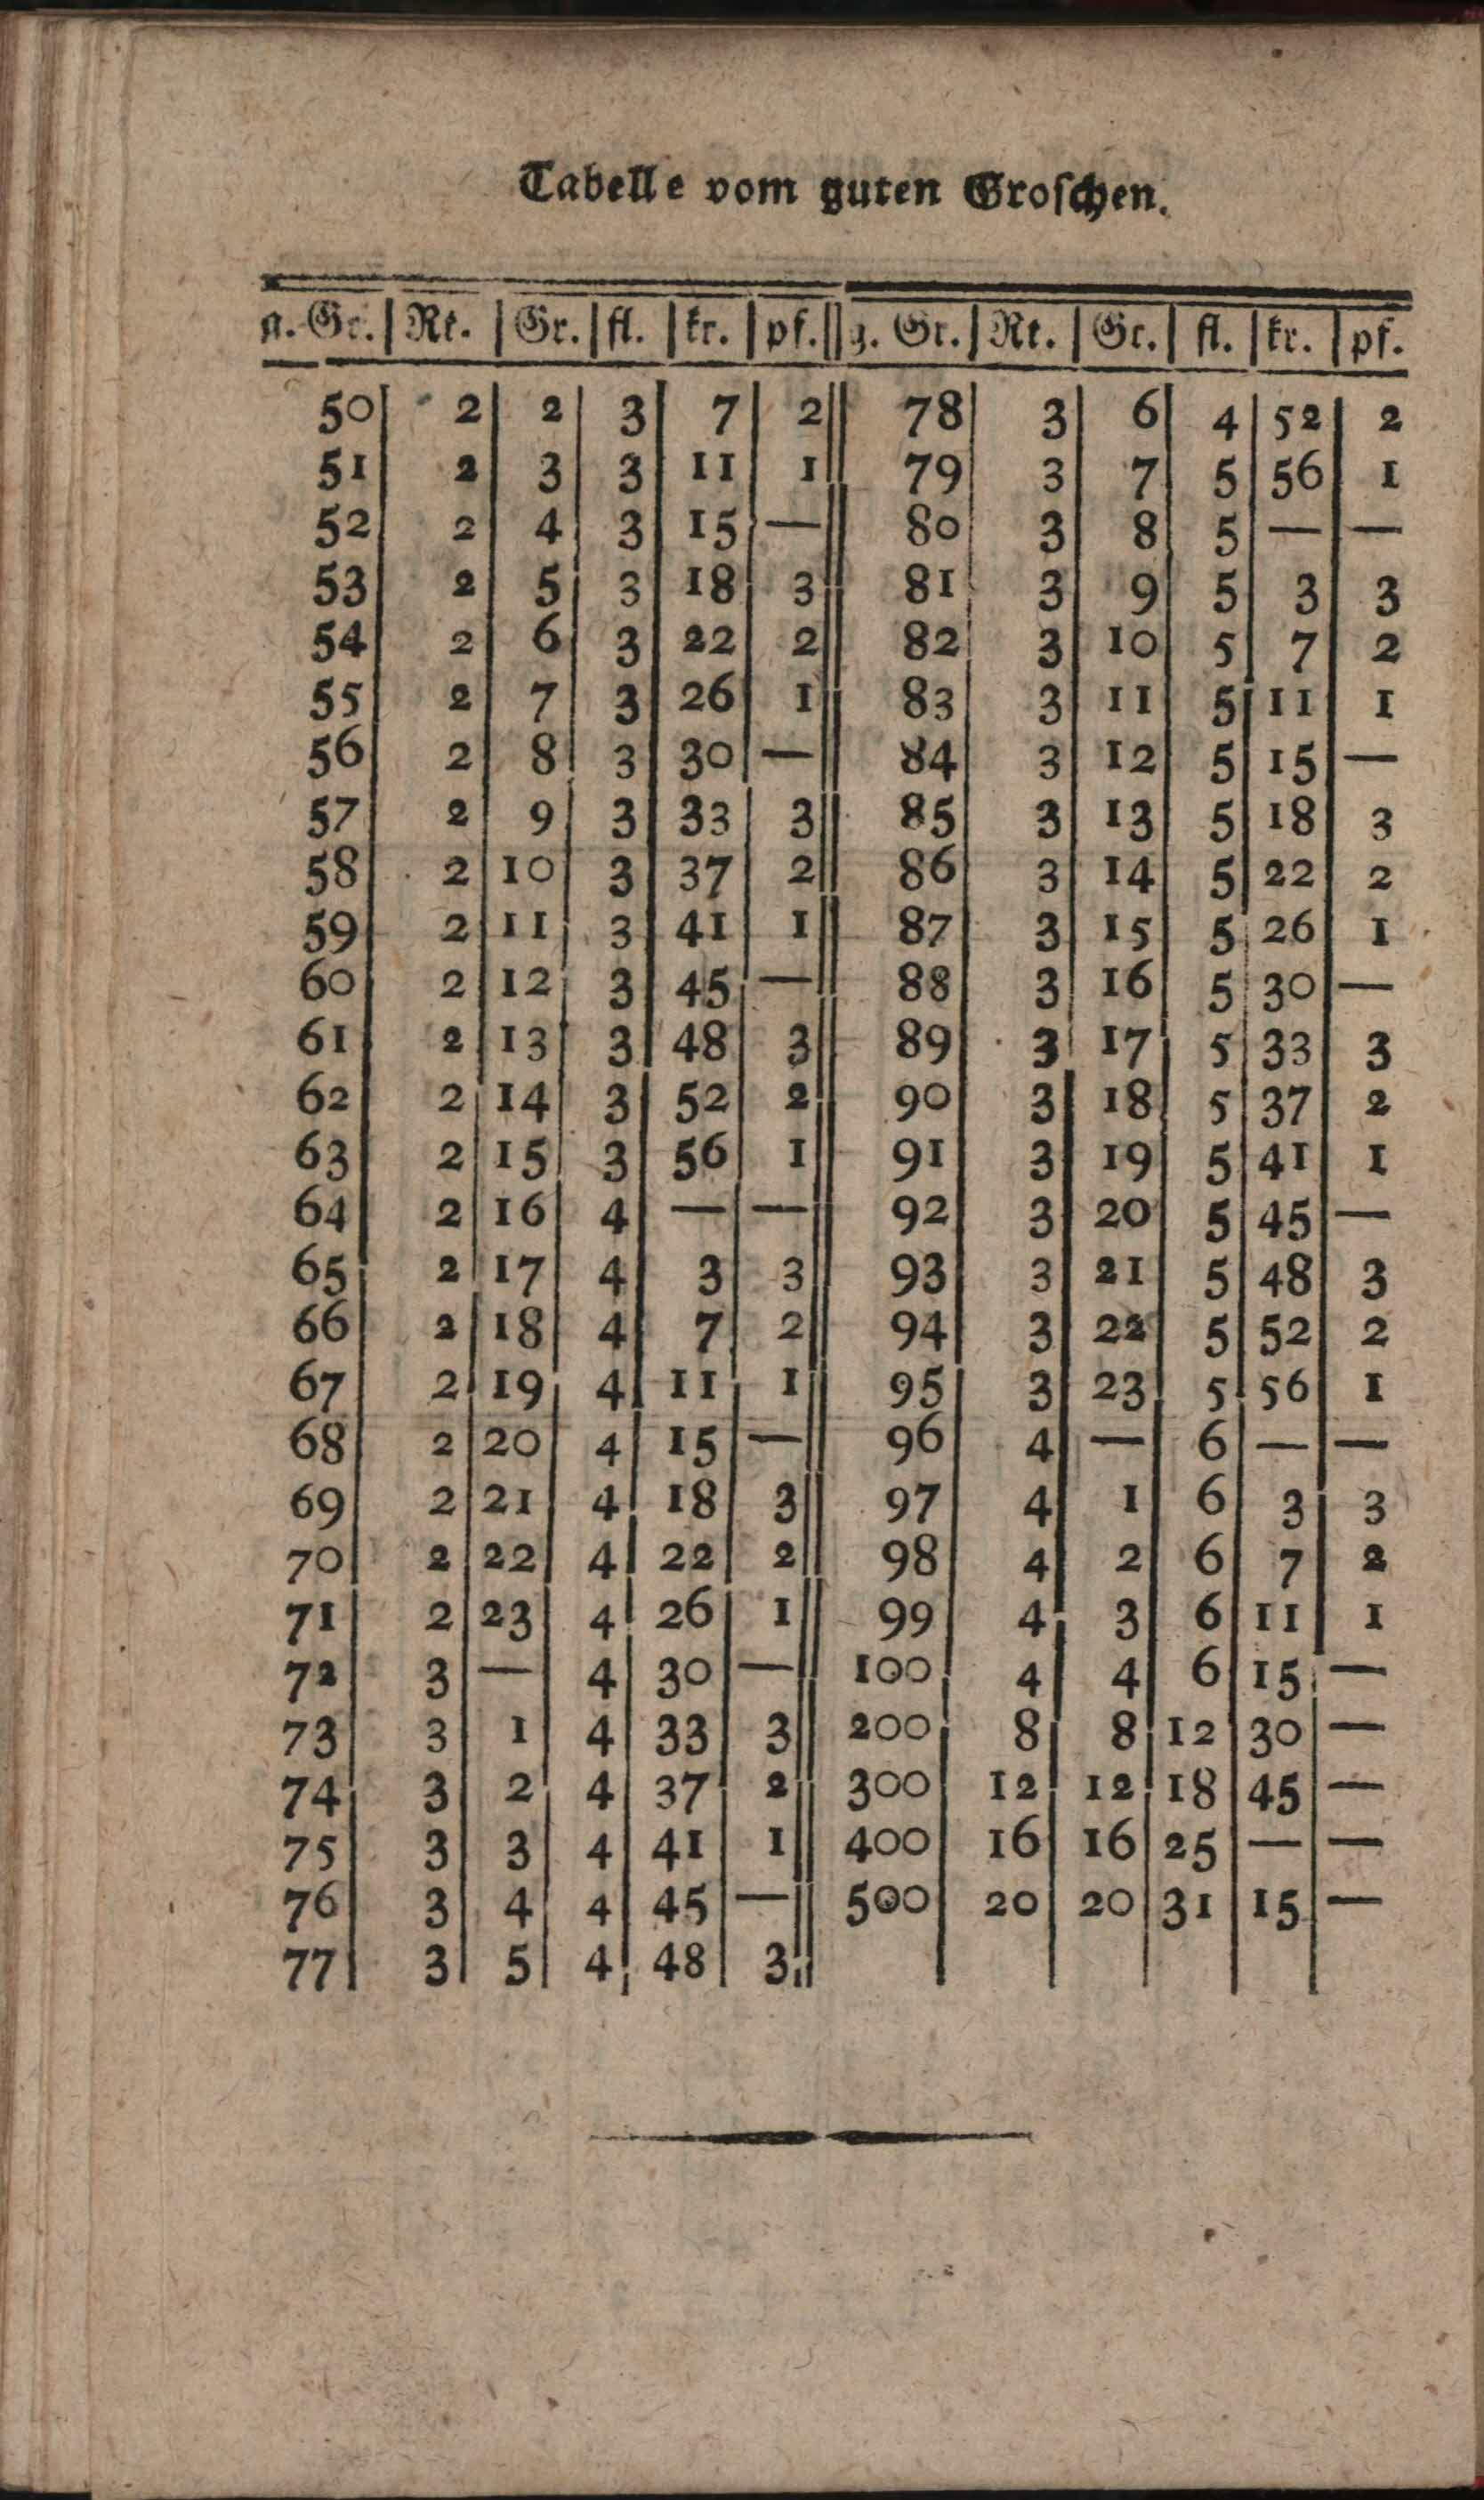 Tabelle vom guten Groschen.
g. Gr. | Rt. | Gr. | fl. | kr. | pf. || g. Gr. | Rt. | Gr. | fl. | kr. | pf.
50 | 2 | 2 | 3 | 7 | 2 || 78 | 3 | 6 | 4 | 52 | 2
51 | 2 | 3 | 3 | 11 | 1 || 79 | 3 | 7 | 5 | 56 | 1
52 | 2 | 4 | 3 | 15 | — || 80 | 3 | 8 | 5 | — | —
53 | 2 | 5 | 3 | 18 | 3 || 81 | 3 | 9 | 5 | 3 | 3
54 | 2 | 6 | 3 | 22 | 2 || 82 | 3 | 10 | 5 | 7 | 2
55 | 2 | 7 | 3 | 26 | 1 || 83 | 3 | 11 | 5 | 11 | 1
56 | 2 | 8 | 3 | 30 | — || 84 | 3 | 12 | 5 | 15 | —
57 | 2 | 9 | 3 | 33 | 3 || 85 | 3 | 13 | 5 | 18 | 3
58 | 2 | 10 | 3 | 37 | 2 || 86 | 3 | 14 | 5 | 22 | 2
59 | 2 | 11 | 3 | 41 | 1 || 87 | 3 | 15 | 5 | 26 | 1
60 | 2 | 12 | 3 | 45 | — || 88 | 3 | 16 | 5 | 30 | —
61 | 2 | 13 | 3 | 48 | 3 || 89 | 3 | 17 | 5 | 33 | 3
62 | 2 | 14 | 3 | 52 | 2 || 90 | 3 | 18 | 5 | 37 | 2
63 | 2 | 15 | 3 | 56 | 1 || 91 | 3 | 19 | 5 | 41 | 1
64 | 2 | 16 | 4 | — | — || 92 | 3 | 20 | 5 | 45 | —
65 | 2 | 17 | 4 | 3 | 3 || 93 | 3 | 21 | 5 | 48 | 3
66 | 2 | 18 | 4 | 7 | 2 || 94 | 3 | 22 | 5 | 52 | 2
67 | 2 | 19 | 4 | 11 | 1 || 95 | 3 | 23 | 5 | 56 | 1
68 | 2 | 20 | 4 | 15 | — || 96 | 4 | — | 6 | — | —
69 | 2 | 21 | 4 | 18 | 3 || 97 | 4 | 1 | 6 | 3 | 3
70 | 2 | 22 | 4 | 22 | 2 || 98 | 4 | 2 | 6 | 7 | 2
71 | 2 | 23 | 4 | 26 | 1 || 99 | 4 | 3 | 6 | 11 | 1
72 | 3 | — | 4 | 30 | — || 100 | 4 | 4 | 6 | 15 | —
73 | 3 | 1 | 4 | 33 | 3 || 200 | 8 | 8 | 12 | 30 | —
74 | 3 | 2 | 4 | 37 | 2 || 300 | 12 | 12 | 18 | 45 | —
75 | 3 | 3 | 4 | 41 | 1 || 400 | 16 | 16 | 25 | — | —
76 | 3 | 4 | 4 | 45 | — || 500 | 20 | 20 | 31 | 15 | —
77 | 3 | 5 | 4 | 48 | 3 ||